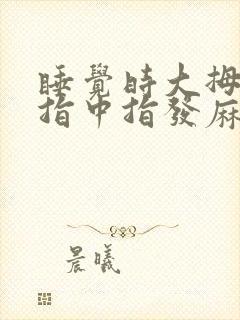 睡覺時大拇
指中指發麻
晨曦